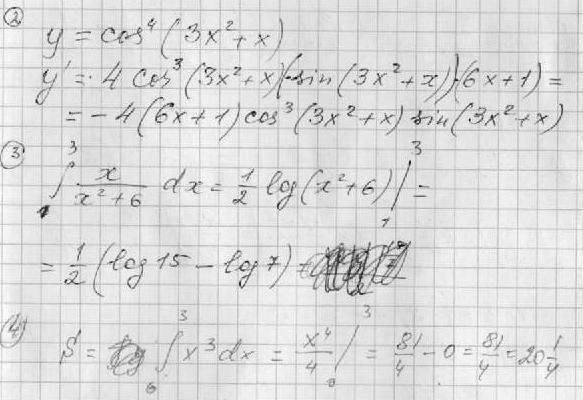 ② y = cos⁴(3x²+x)
y' = 4 cos³(3x²+x)(-sin(3x²+x))·(6x+1) =
= -4(6x+1)cos³(3x²+x) sin(3x²+x)
③ ∫₁³ x/(x²+6) dx = 1/2 log(x²+6) |₁³ =
= 1/2 (log 15 - log 7)
④ S = ∫₀³ x³dx = x⁴/4 |₀³ = 81/4 - 0 = 81/4 = 20 1/4